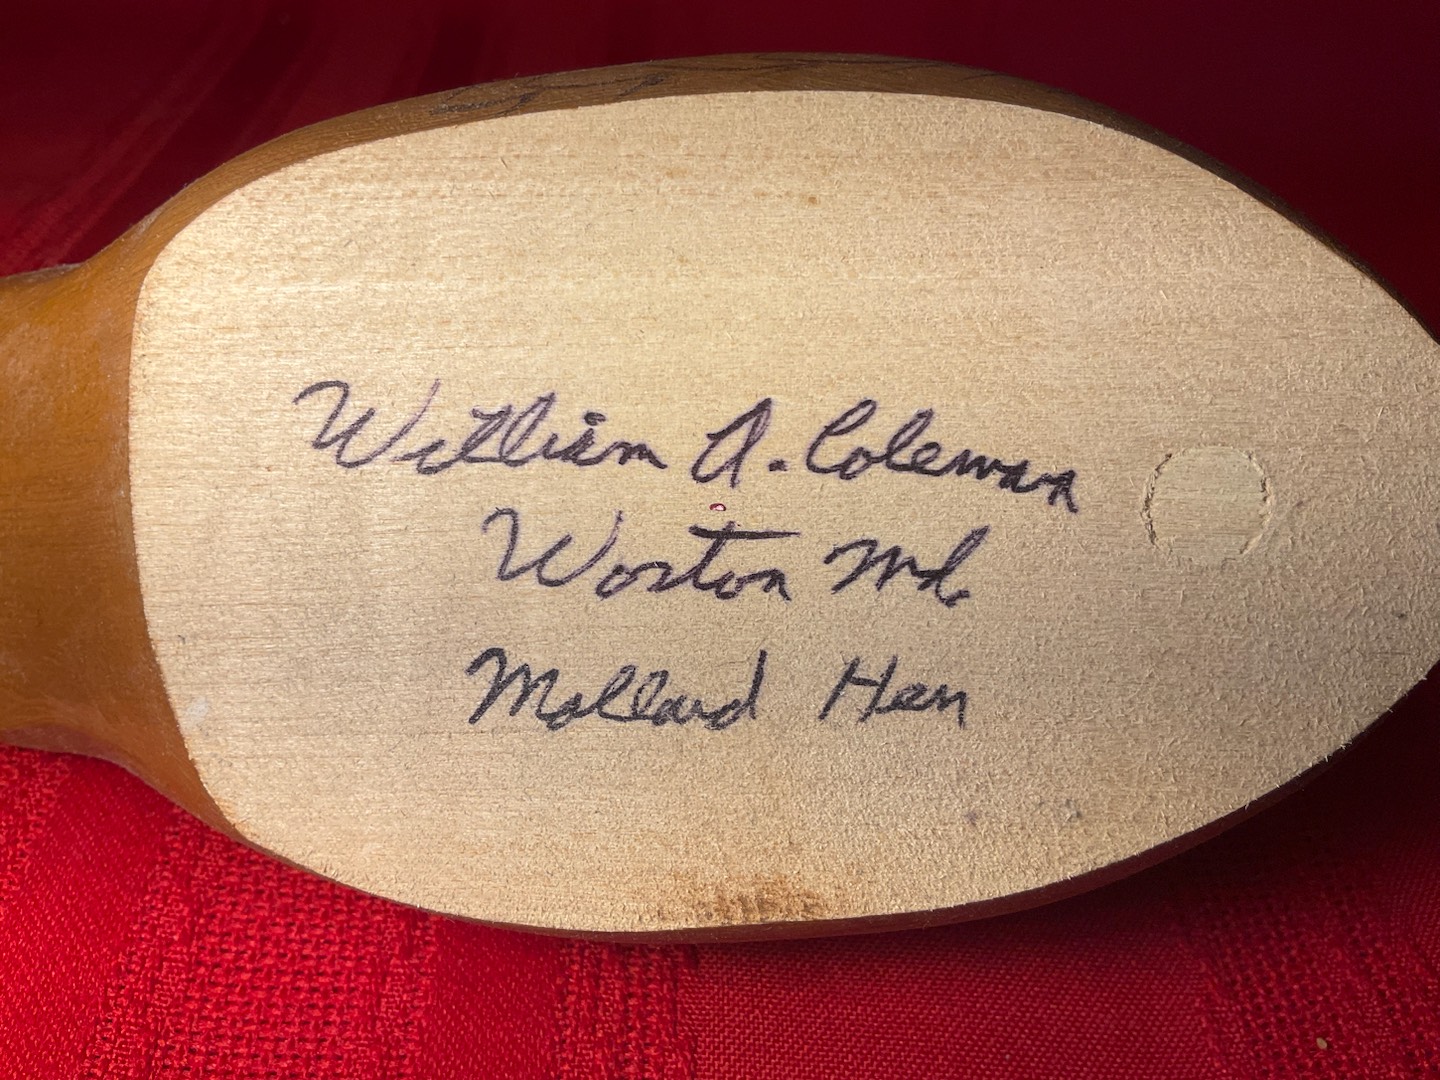 William A. Coleman
Worton Md.
Mallard Hen